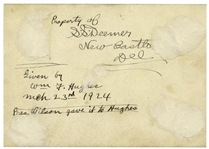 Property of
S. D. Deemer
New Castle
Del.
Given by
Wm F. Hughes
Mch 23rd 1924
Pres. Wilson gave it to Hughes